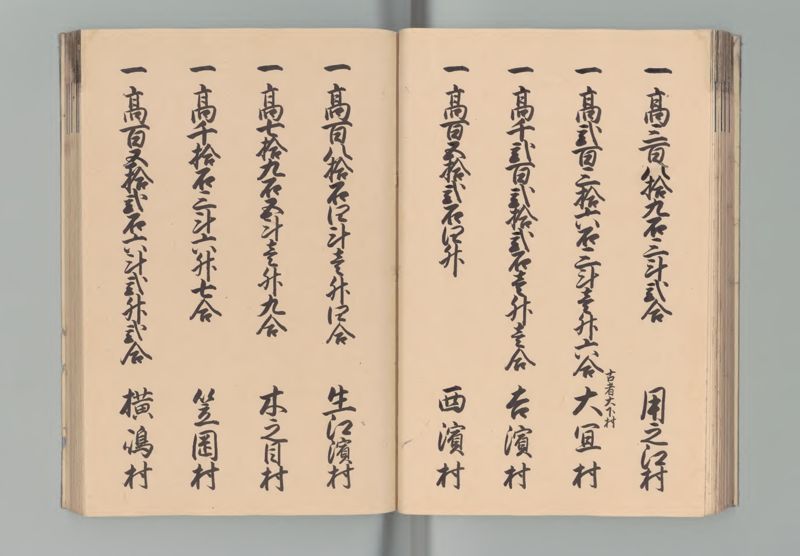 一 髙三百八拾九石三斗弐合 用之江村
一 髙弐百三拾六石三斗壱升六合 大冝村
古者大下村
一 髙千弐百弐拾弐石壱升壱合 吉濱村
一 髙百五拾弐石四升 西濱村
一 髙百八拾石四斗壱升四合 生江濱村
一 髙七拾九石五斗壱升九合 木之目村
一 髙千拾石三斗六升七合 笠岡村
一 髙百五拾弐石六斗弐升弐合 横嶋村